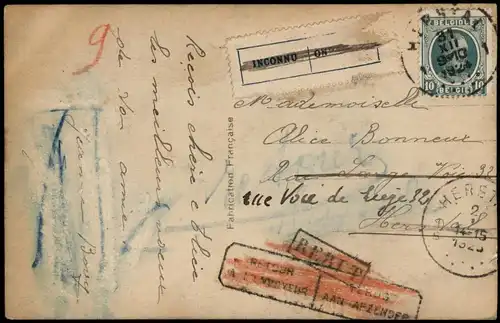 9
Reçois chère Alice
les meilleurs vœux
de ton amie
Jeanne
Fabrication Française
INCONNU
ON
BELGIE
BELGIQUE
10 10
31
XII
1924
Mademoiselle
Alice Bonneux
Rue Large Voie 32
rue Voie de Liège 32
Herstal
HERST
2
I
14-15
1925
REBUT
RETOUR
A L'ENVOYEUR
TERUG
AAN AFZENDER